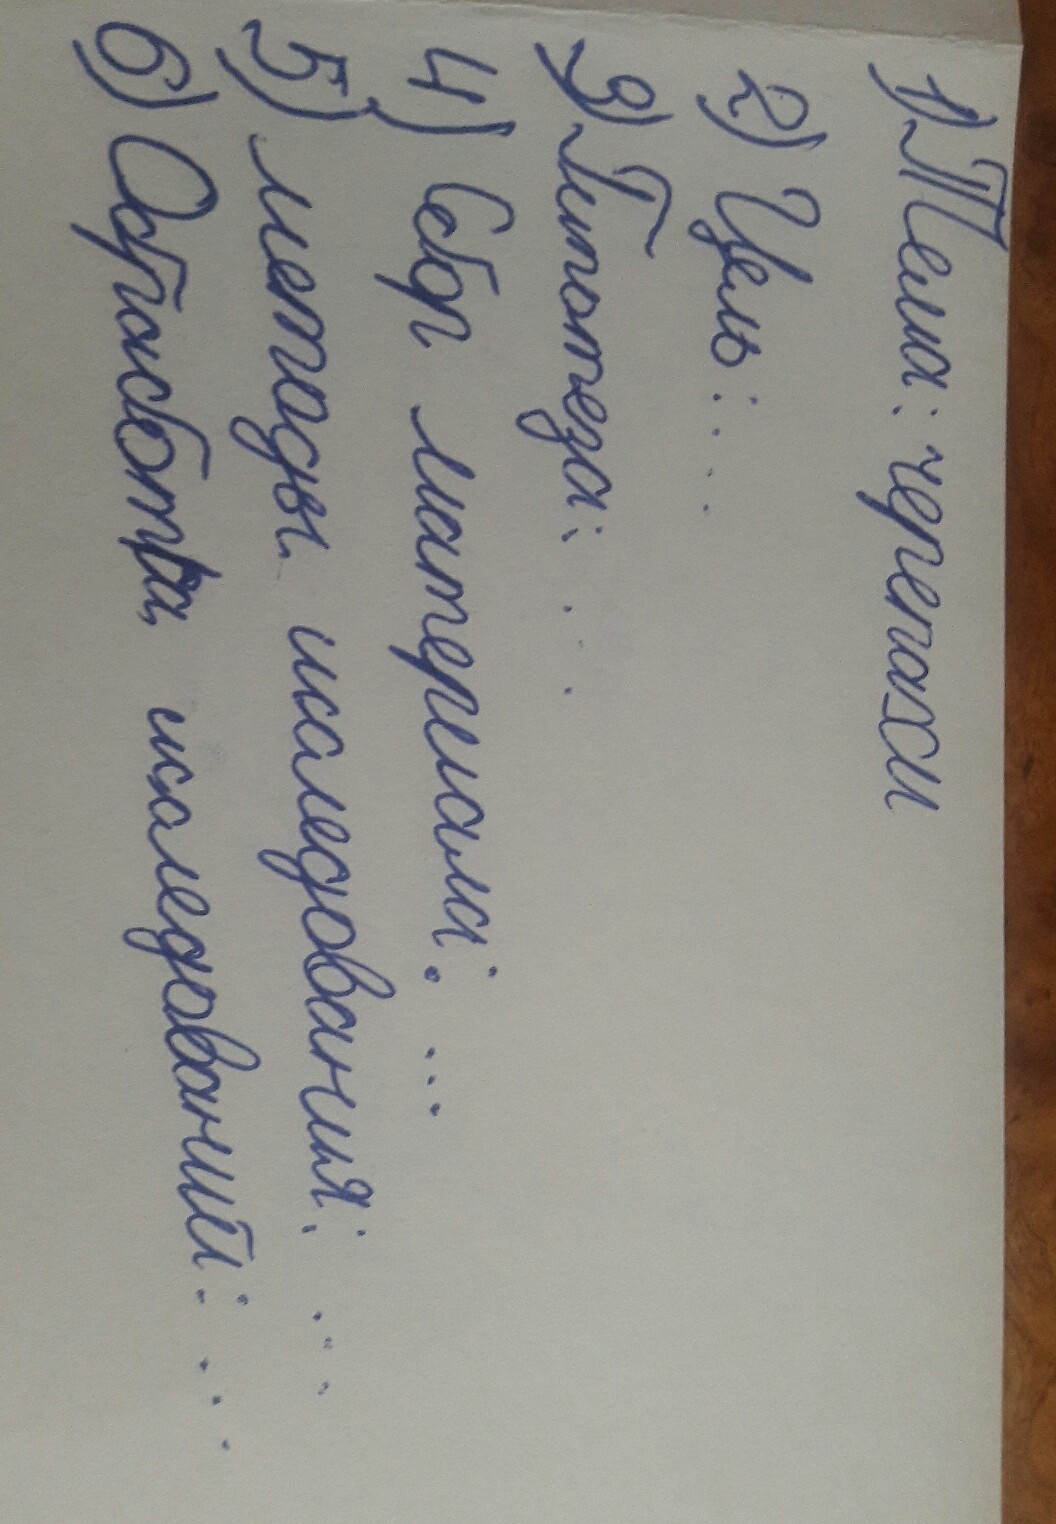 1) Тема: черепахи
2) Цель: ...
3) Гипотеза: ...
4) Сбор материалы: ...
5) методы иследования: ...
6) Обработка иследований: ...